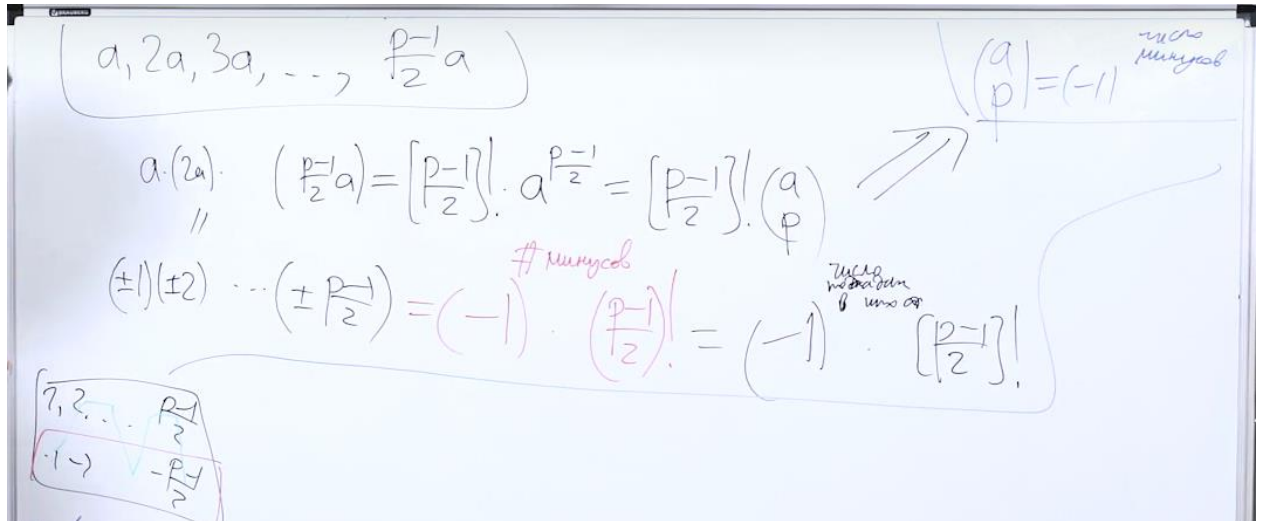 a, 2a, 3a, ..., \frac{p-1}{2}a
\left(\frac{a}{p}\right) = (-1)^{число минусов}
a·(2a)· \left(\frac{p-1}{2}a\right) = \left[\frac{p-1}{2}\right]! · a^{\frac{p-1}{2}} = \left[\frac{p-1}{2}\right]! \left(\frac{a}{p}\right)
(±1)(±2) ... \left(±\frac{p-1}{2}\right) = (-1)^{# минусов} · \left(\frac{p-1}{2}\right)! = (-1)^{число} · \left[\frac{p-1}{2}\right]!
1, 2, ... \frac{p-1}{2}
-1 -2 -\frac{p-1}{2}